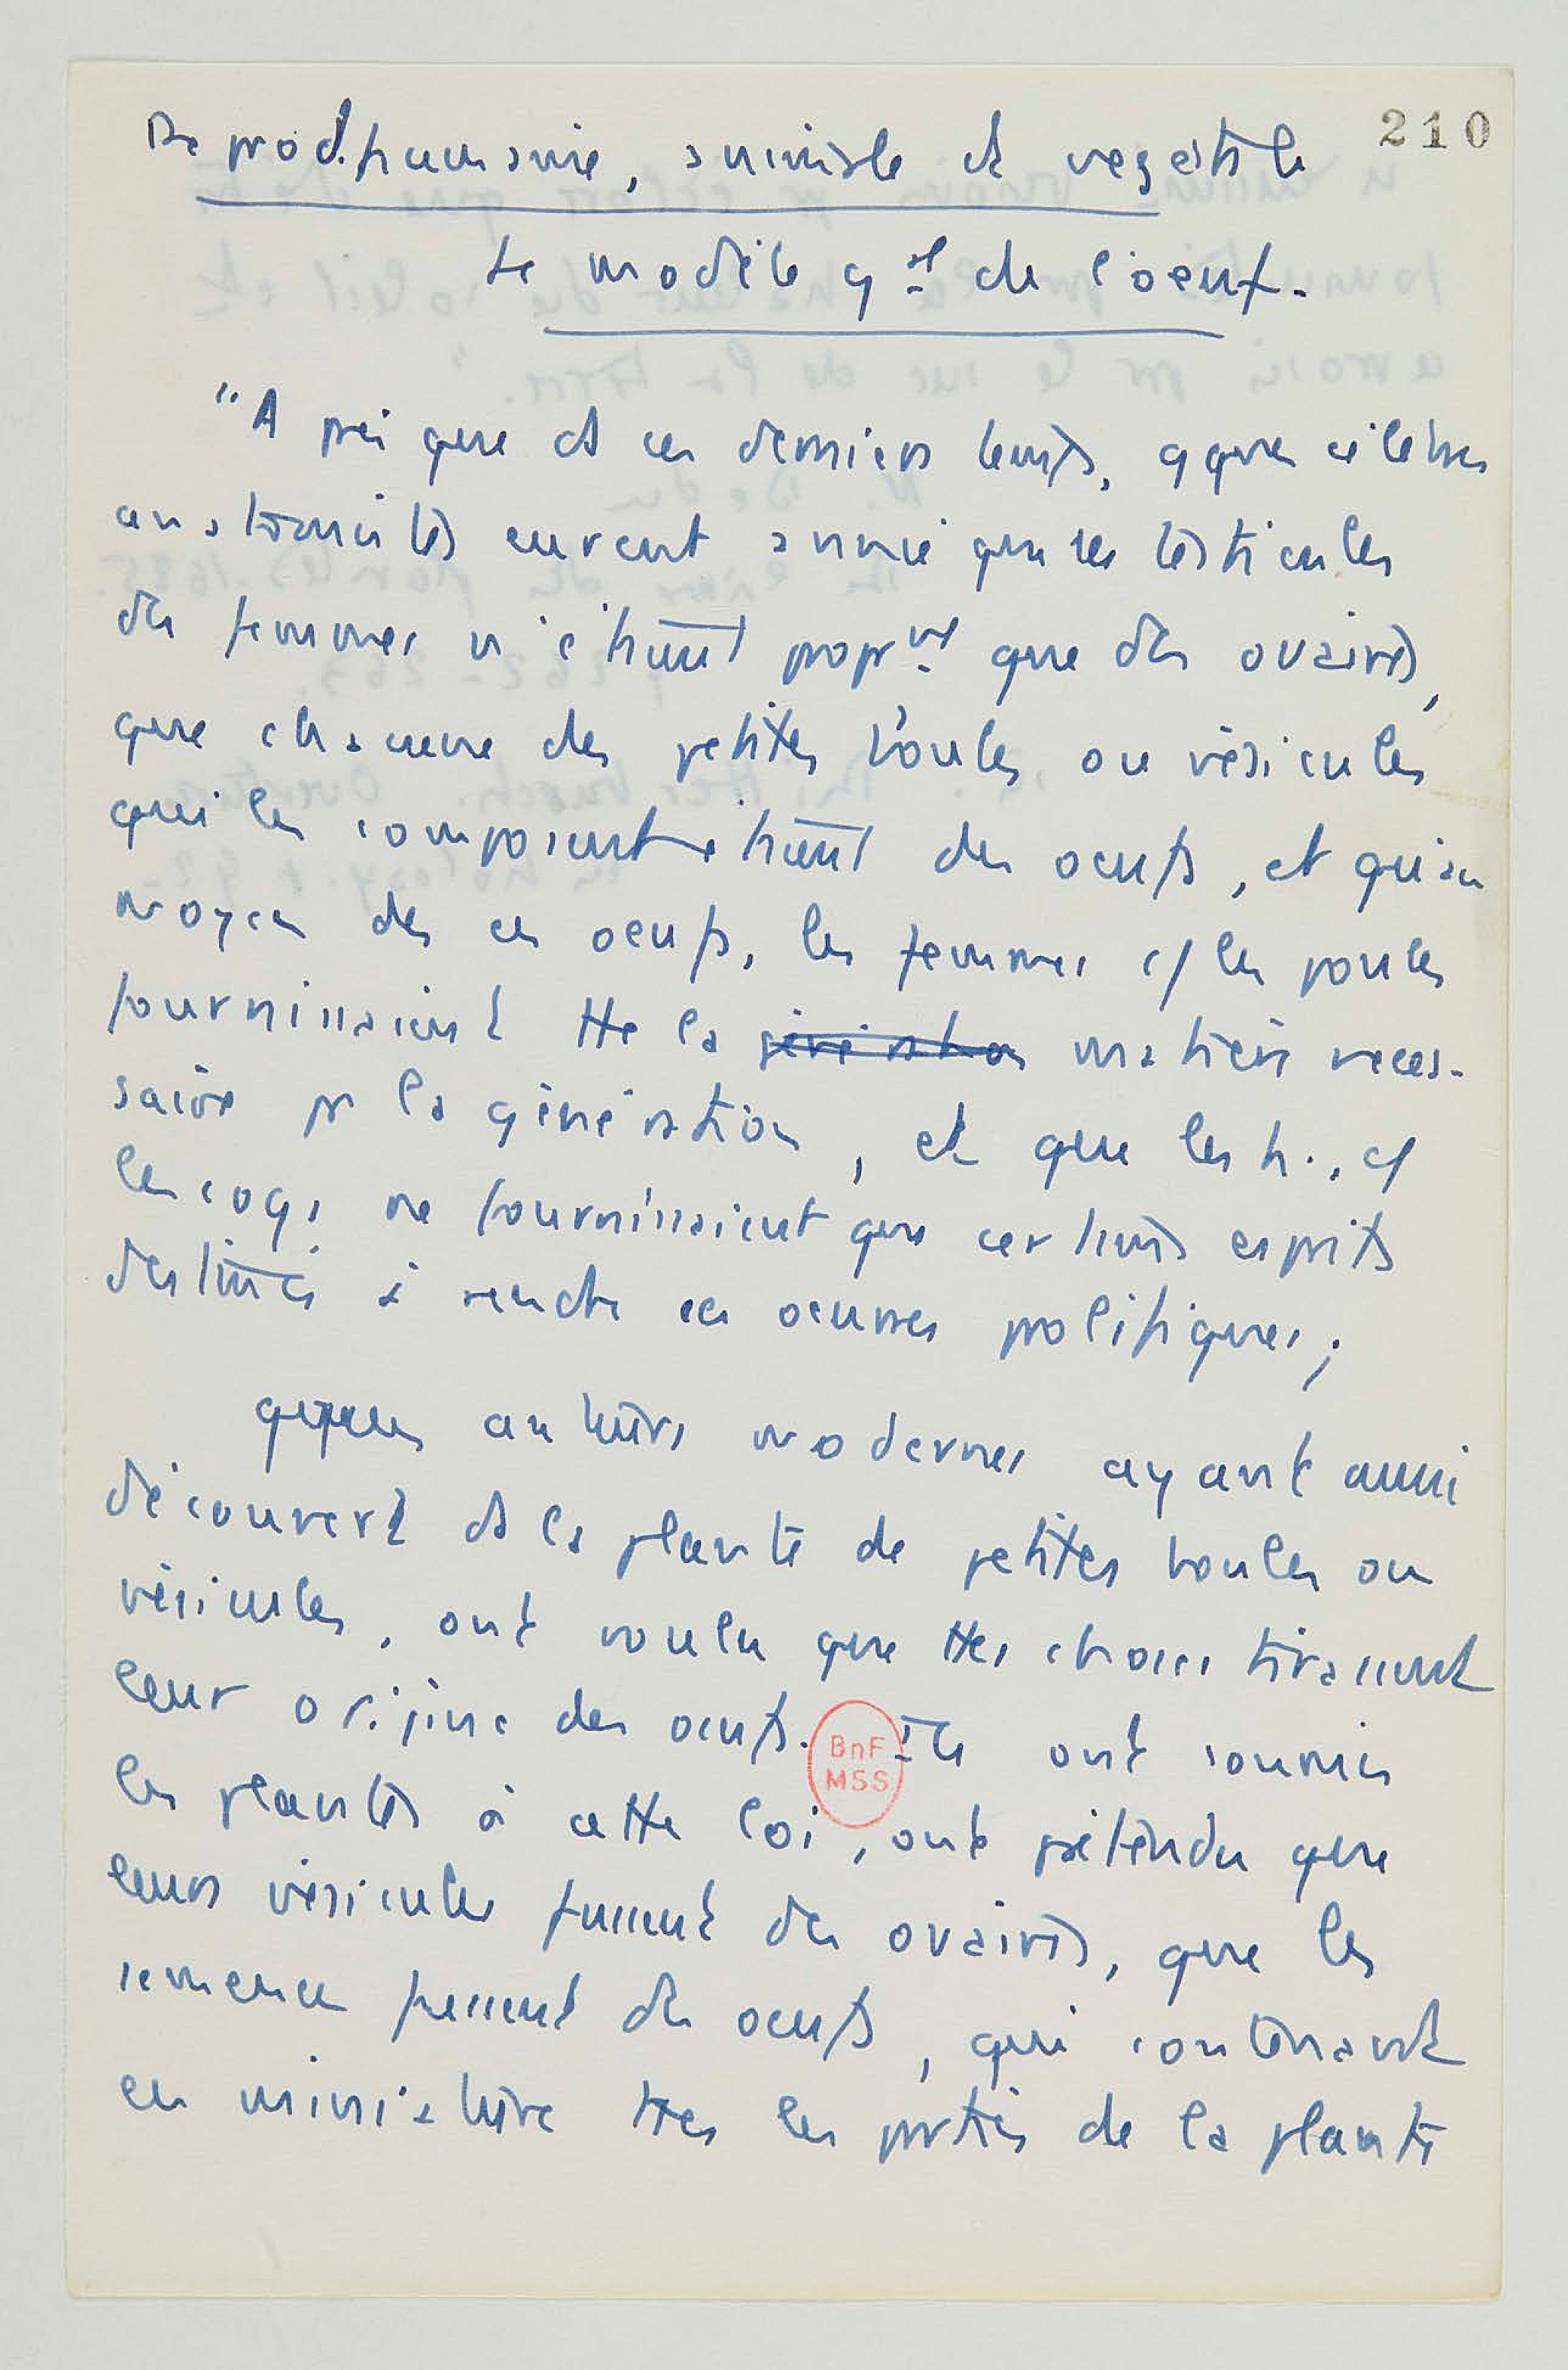 210
Reprod. humaine, animale et vegetale
Le modèle gal de l'oeuf.
"A près que ds ces derniers temps, qques célèbres
anatomistes eurent animé que les testicules
des femmes n'étaient propmt que des ovaires,
que chacune des petites boules ou vésicules
qui les composent étaient des oeufs, et qu'au
moyen des ces oeufs, les femmes c/ les poules
fournissaient tte la génération matière néces-
saire pr la génération, et que les h., c/
les coqs ne fournissaient que certains esprits
destinés à rendre ces oeuvres prolifiques;
qques auteurs modernes ayant aussi
découvert ds la plante de petites boules ou
vésicules, ont voulu que ttes choses tirassent
leur origine des oeufs. Ils ont soumis
les plantes à cette loi, ont prétendu que
leurs vésicules fussent des ovaires, que les
semences fussent des oeufs, qui contenant
en miniature ttes les parties de la plante
BnF
MSS